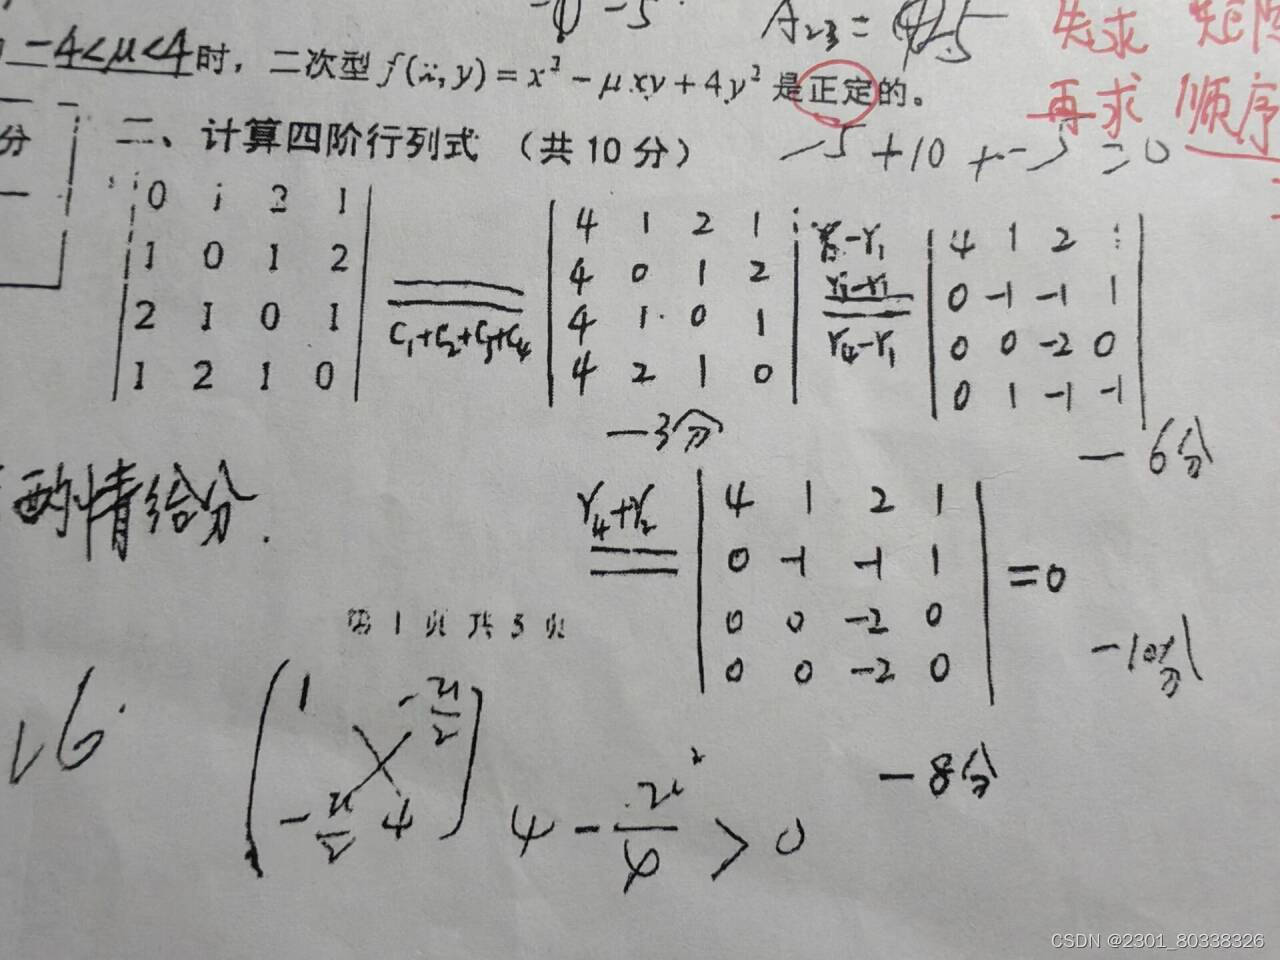 -5
A₂₃ = 5
先求
-4<μ<4时，二次型 f(x, y) = x² - μxy + 4y² 是正定的。
再求 顺序
分
二、计算四阶行列式 （共10分）
-5 + 10 + -5 = 0
0 1 2 1
1 0 1 2
2 1 0 1
1 2 1 0
C₁+C₂+C₃+C₄
4 1 2 1
4 0 1 2
4 1 0 1
4 2 1 0
-r₁
r₃-r₁
r₄-r₁
4 1 2 1
0 -1 -1 1
0 0 -2 0
0 1 -1 -1
-3分
-6分
酌情给分.
r₄+r₂
4 1 2 1
0 -1 -1 1
0 0 -2 0
0 0 -2 0
=0
-10分
第 1 页 共 3 页
-8分
16.
1 -u/2
-u/2 4
4 - u²/4 > 0
CSDN @2301_80338326